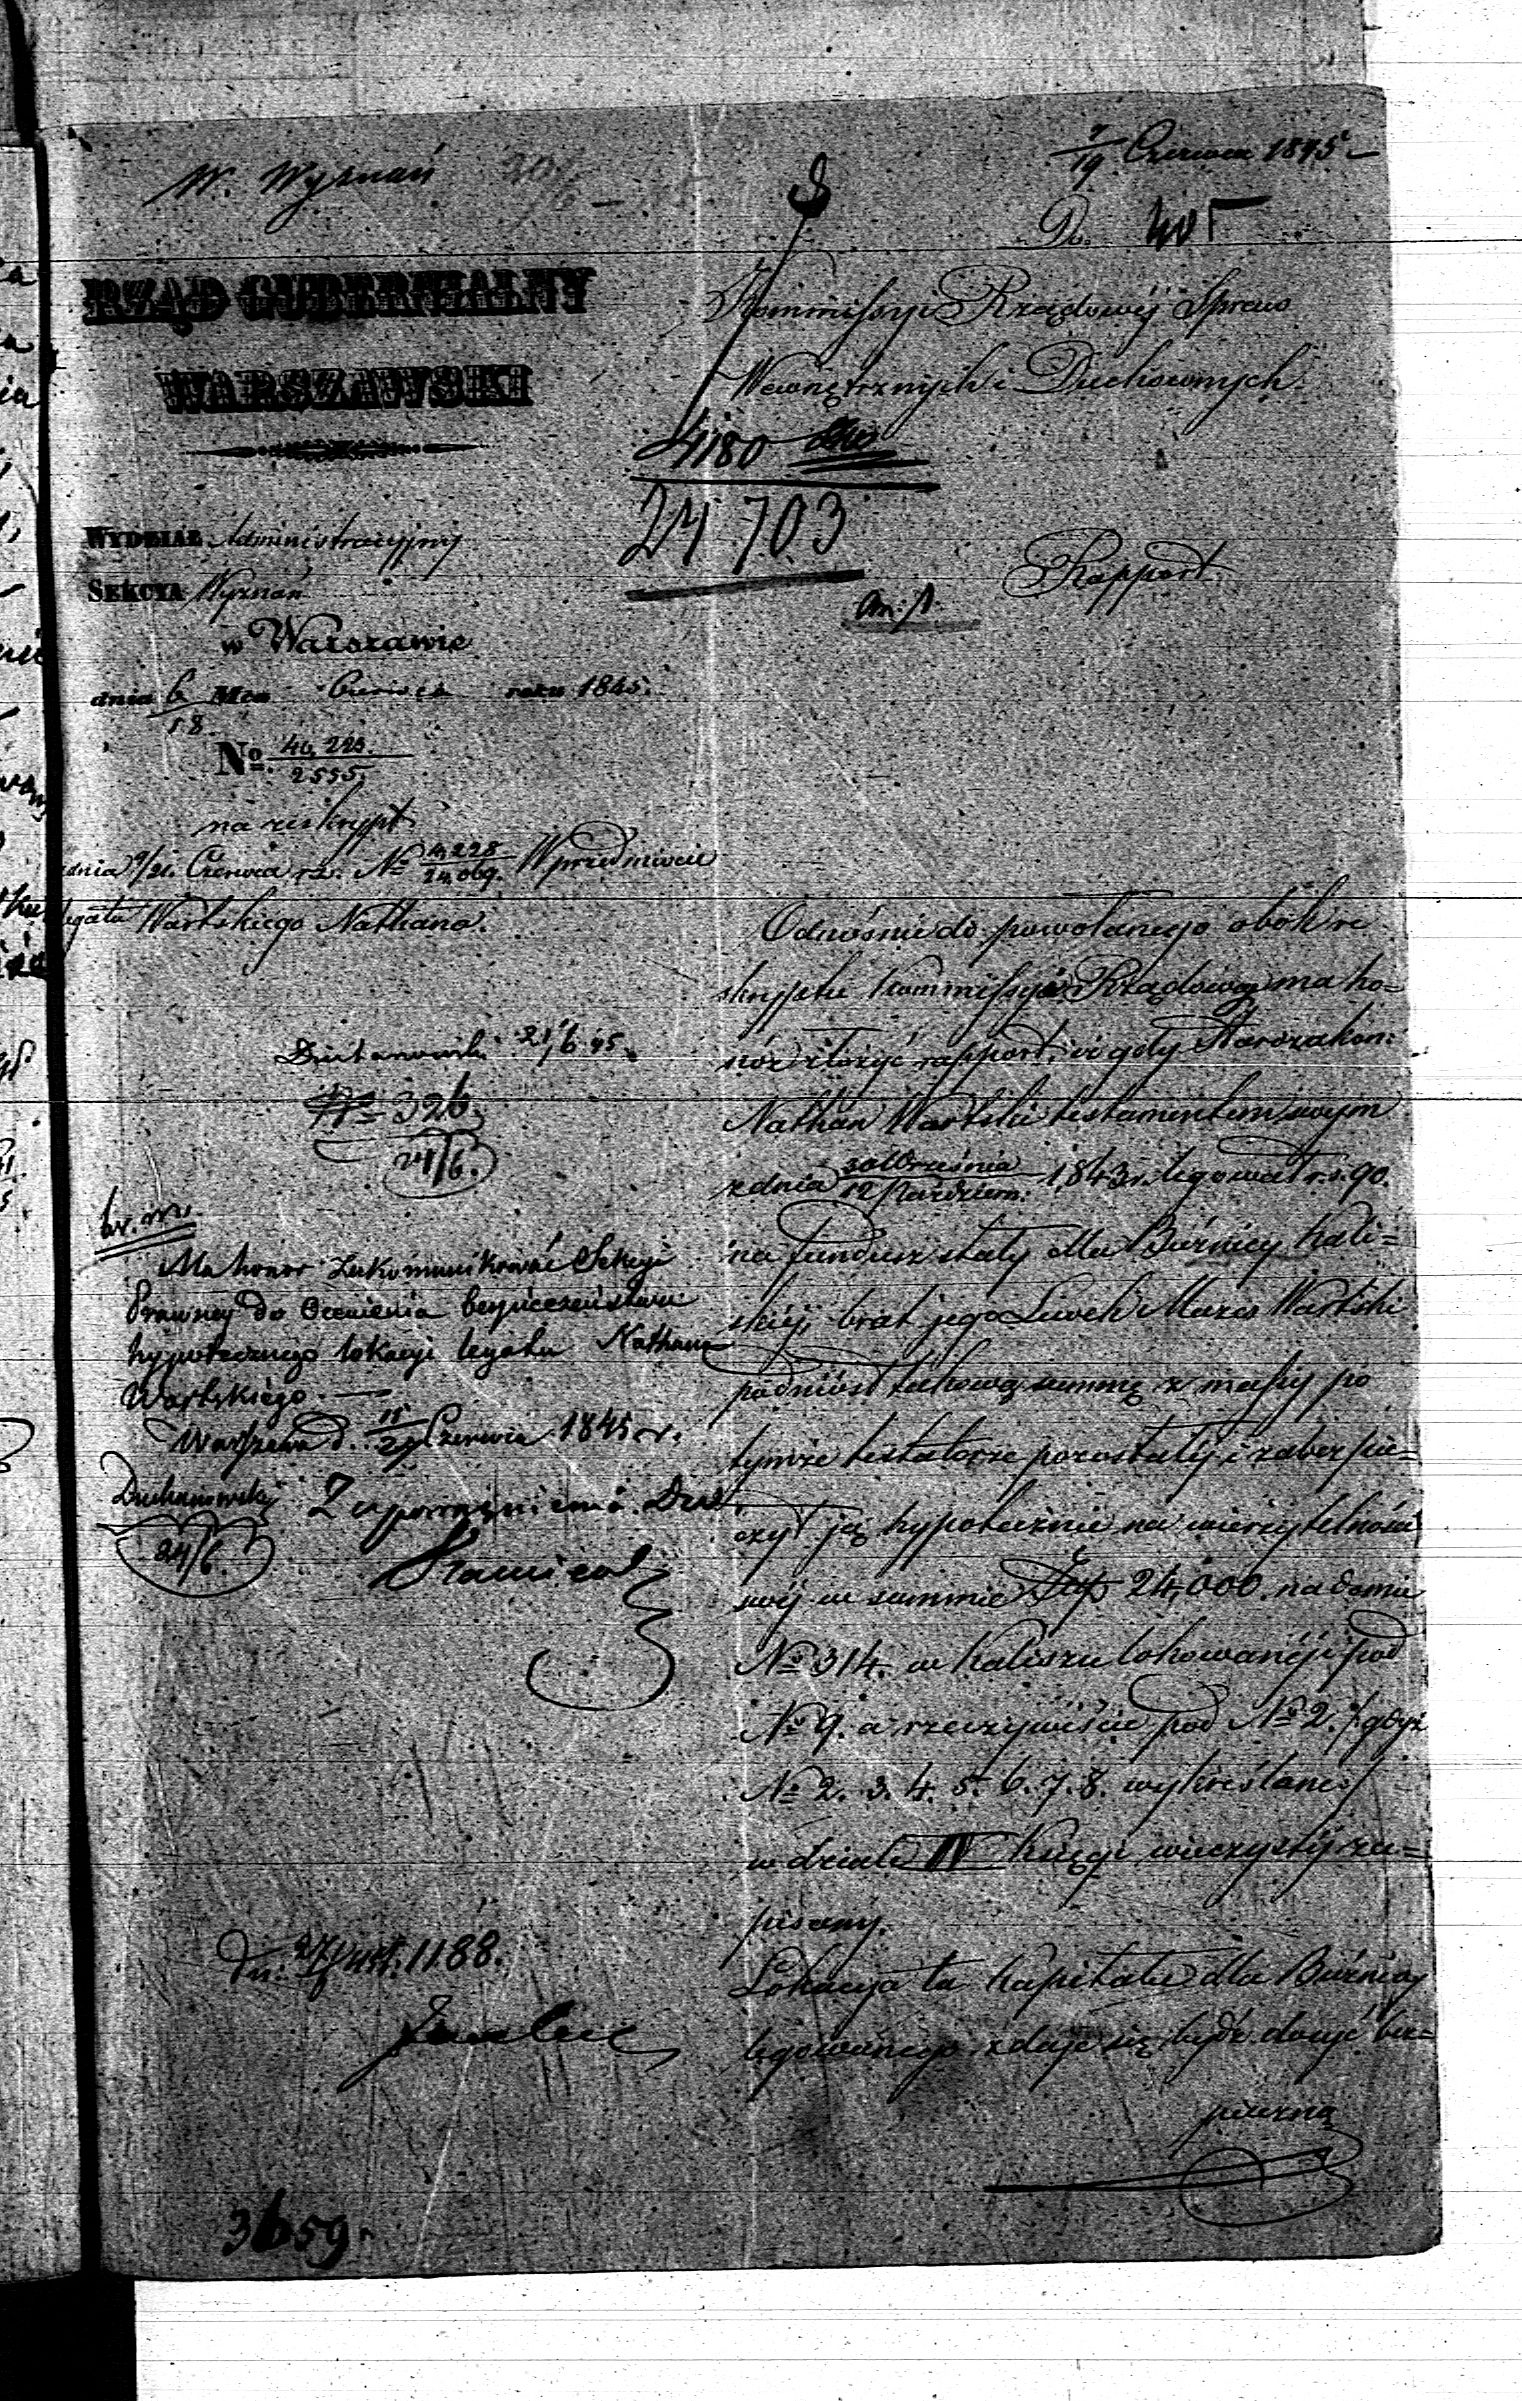 W. Wyznań
7/19 Czerwca 1845
Do
RZĄD GUBERNIALNY
WARSZAWSKI
Kommissyi Rządowéj Spraw
Wewnętrznych i Duchownych
4180
24703
WYDZIAŁ Administracyjny
SEKCYA Wyznań
w Warszawie
dnia 6/18 Mca Czerwca roku 1845.
No. 46,225./2555.
Rapport.
na reskrypt
dnia 9/21. Czerwca r.z. No 4,228/24,069. W przedmiocie
legatu Wartskiego Nathana.
Odnośnie do powołanego obok re
skryptu Kommissyi Rządowéj ma ho=
nór złożyć rapport, iż gdy Starozakon:
Nathan Wartski testamentem swym
z dnia 30 Września/12 Październ: 1843 r. legował r.s. 90.
na fundusz stały dla Bóżnicy Kali=
skiéj, brat jego Lewek Mazes Wartski
podniósł takową summę z massy po
tymże testatorze pozostałéj i zabezpie=
czył ją hypotecznie na wierzytelności
swéj w summie Złp 24,000. na domu
No 314. w Kaliszu lokowanéj i pod
No 9. a rzeczywiście pod No 2. /: gdyż
No 2. 3. 4. 5. 6. 7. 8. wykreślone :/
w dziale IV Księgi wieczystéj za=
pisanéj.
Lokacya ta Kapitału dla Bóżnicy
legowanego zdaje się być dosyć bez=
pieczną
21/6 45.
No 326.
24/6.
Ma honor zakommunikować Sekcyi
Prawnéj do Ocenienia bezpieczeństwa
hypotecznego lokacyi legatu Nathana
Wartskiego.
Warszawa d. 15/27 Czerwca 1845 r.
Z upoważnienia Dyr.
24/6.
dn. 27/6 45. 1188.
3659